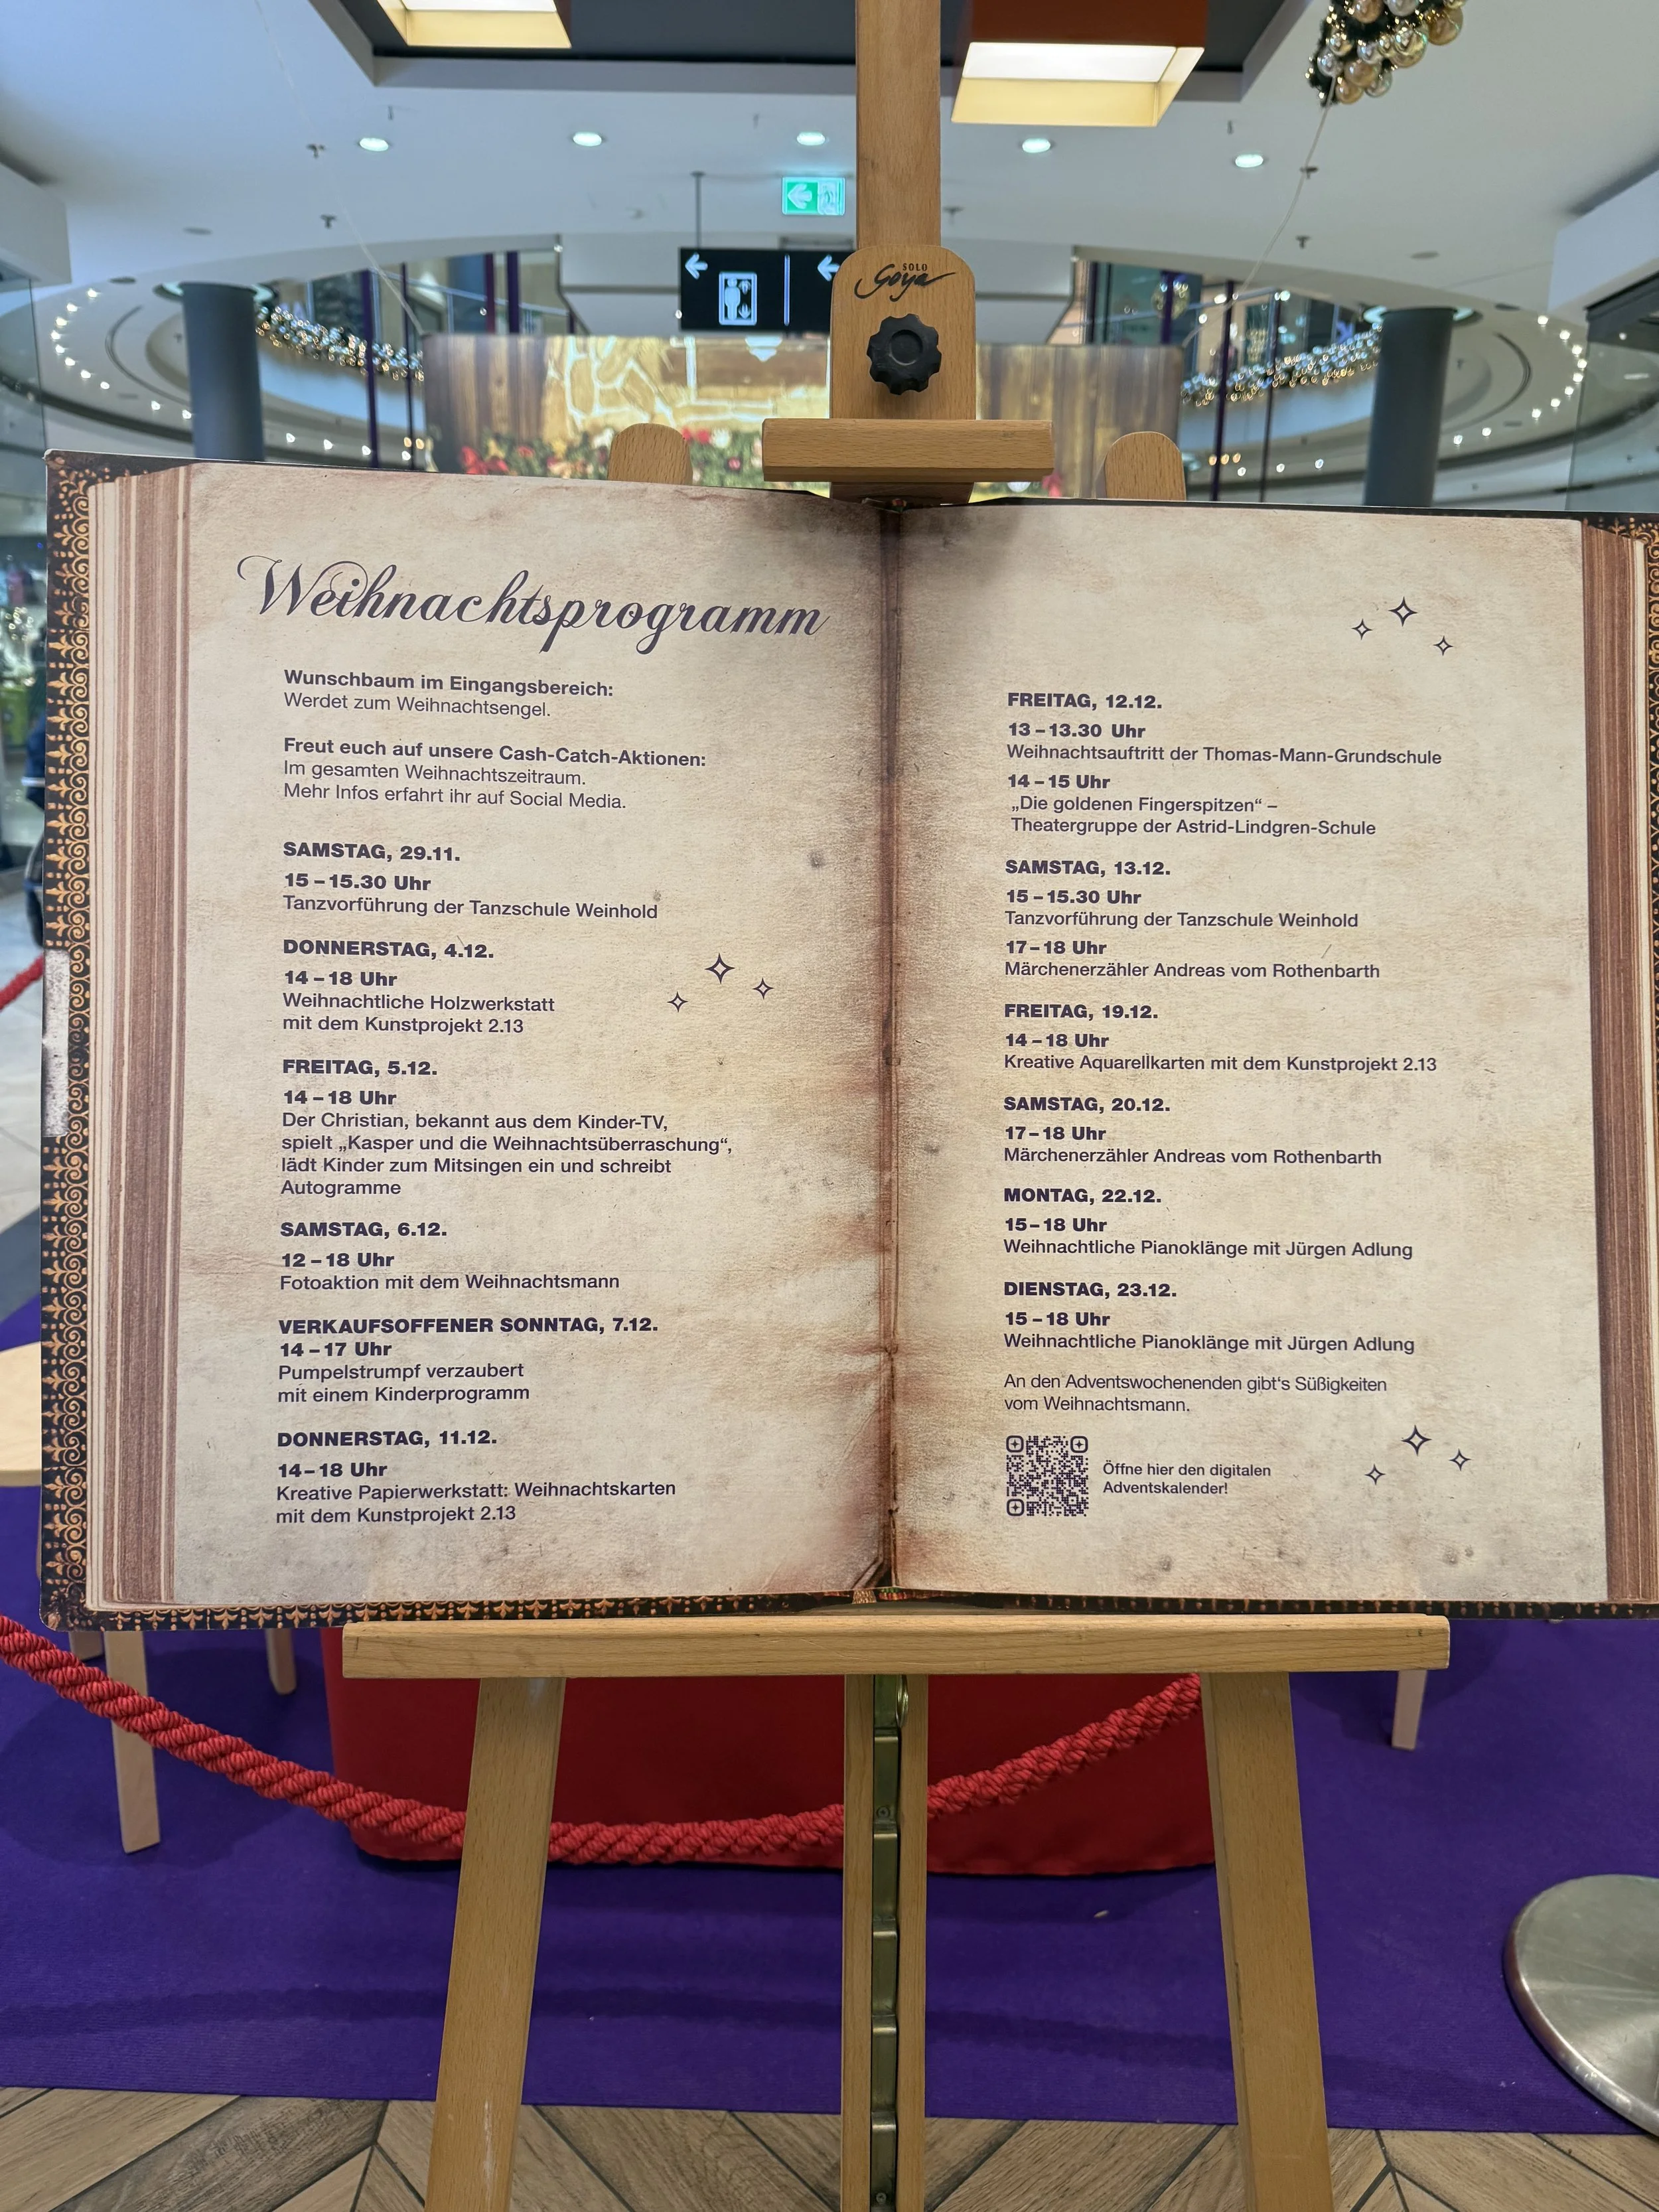 SOLO
Goya
Weihnachtsprogramm
Wunschbaum im Eingangsbereich:
Werdet zum Weihnachtsengel.
Freut euch auf unsere Cash-Catch-Aktionen:
Im gesamten Weihnachtszeitraum.
Mehr Infos erfahrt ihr auf Social Media.
SAMSTAG, 29.11.
15 – 15.30 Uhr
Tanzvorführung der Tanzschule Weinhold
DONNERSTAG, 4.12.
14 – 18 Uhr
Weihnachtliche Holzwerkstatt
mit dem Kunstprojekt 2.13
FREITAG, 5.12.
14 – 18 Uhr
Der Christian, bekannt aus dem Kinder-TV,
spielt „Kasper und die Weihnachtsüberraschung“,
lädt Kinder zum Mitsingen ein und schreibt
Autogramme
SAMSTAG, 6.12.
12 – 18 Uhr
Fotoaktion mit dem Weihnachtsmann
VERKAUFSOFFENER SONNTAG, 7.12.
14 – 17 Uhr
Pumpelstrumpf verzaubert
mit einem Kinderprogramm
DONNERSTAG, 11.12.
14 – 18 Uhr
Kreative Papierwerkstatt: Weihnachtskarten
mit dem Kunstprojekt 2.13
FREITAG, 12.12.
13 – 13.30 Uhr
Weihnachtsauftritt der Thomas-Mann-Grundschule
14 – 15 Uhr
„Die goldenen Fingerspitzen“ –
Theatergruppe der Astrid-Lindgren-Schule
SAMSTAG, 13.12.
15 – 15.30 Uhr
Tanzvorführung der Tanzschule Weinhold
17 – 18 Uhr
Märchenerzähler Andreas vom Rothenbarth
FREITAG, 19.12.
14 – 18 Uhr
Kreative Aquarellkarten mit dem Kunstprojekt 2.13
SAMSTAG, 20.12.
17 – 18 Uhr
Märchenerzähler Andreas vom Rothenbarth
MONTAG, 22.12.
15 – 18 Uhr
Weihnachtliche Pianoklänge mit Jürgen Adlung
DIENSTAG, 23.12.
15 – 18 Uhr
Weihnachtliche Pianoklänge mit Jürgen Adlung
An den Adventswochenenden gibt‘s Süßigkeiten
vom Weihnachtsmann.
Öffne hier den digitalen
Adventskalender!